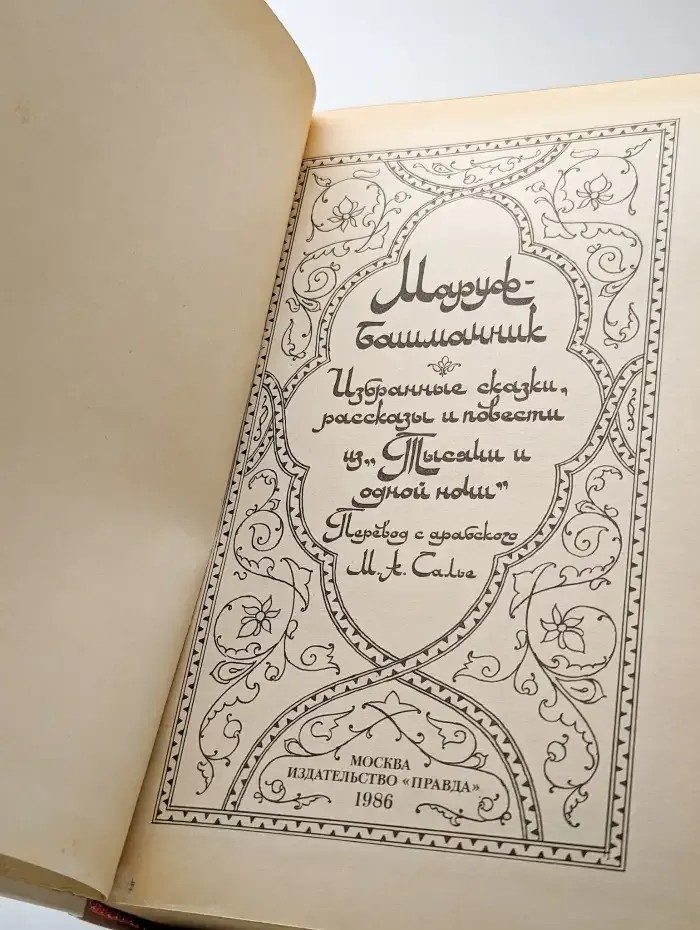 Маруф-
Башмачник
Избранные сказки,
рассказы и повести
из „Тысячи и
одной ночи"
Перевод с арабского
М. А. Салье
МОСКВА
ИЗДАТЕЛЬСТВО «ПРАВДА»
1986